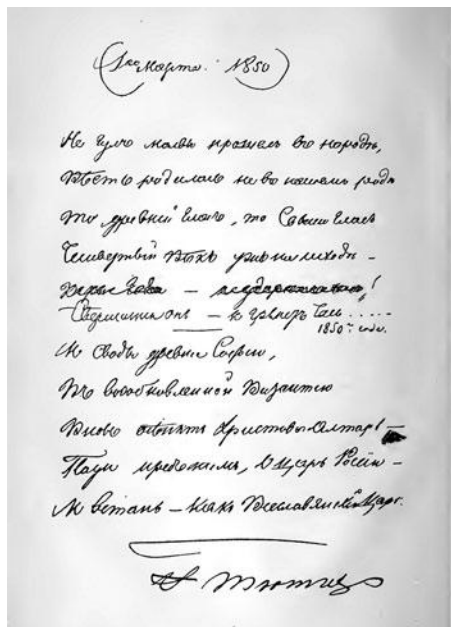 (1го Марта. 1850)
Не гулъ молвы прошелъ въ народѣ,
Вѣсть родилась не въ нашемъ родѣ
То древній гласъ, то Свыше гласъ
Четвертый Вѣкъ ужъ на исходѣ –
Свершится онъ – и грянетъ Часъ.....
1850го года.
И Своды древніе Софіи,
Въ возобновленной Византіи
Вновь осѣнятъ Христовъ Алтарь! –
Пади предъ нимъ, О Царь Россіи –
И встань – какъ Всеславянскій Царь.
Тютчевъ